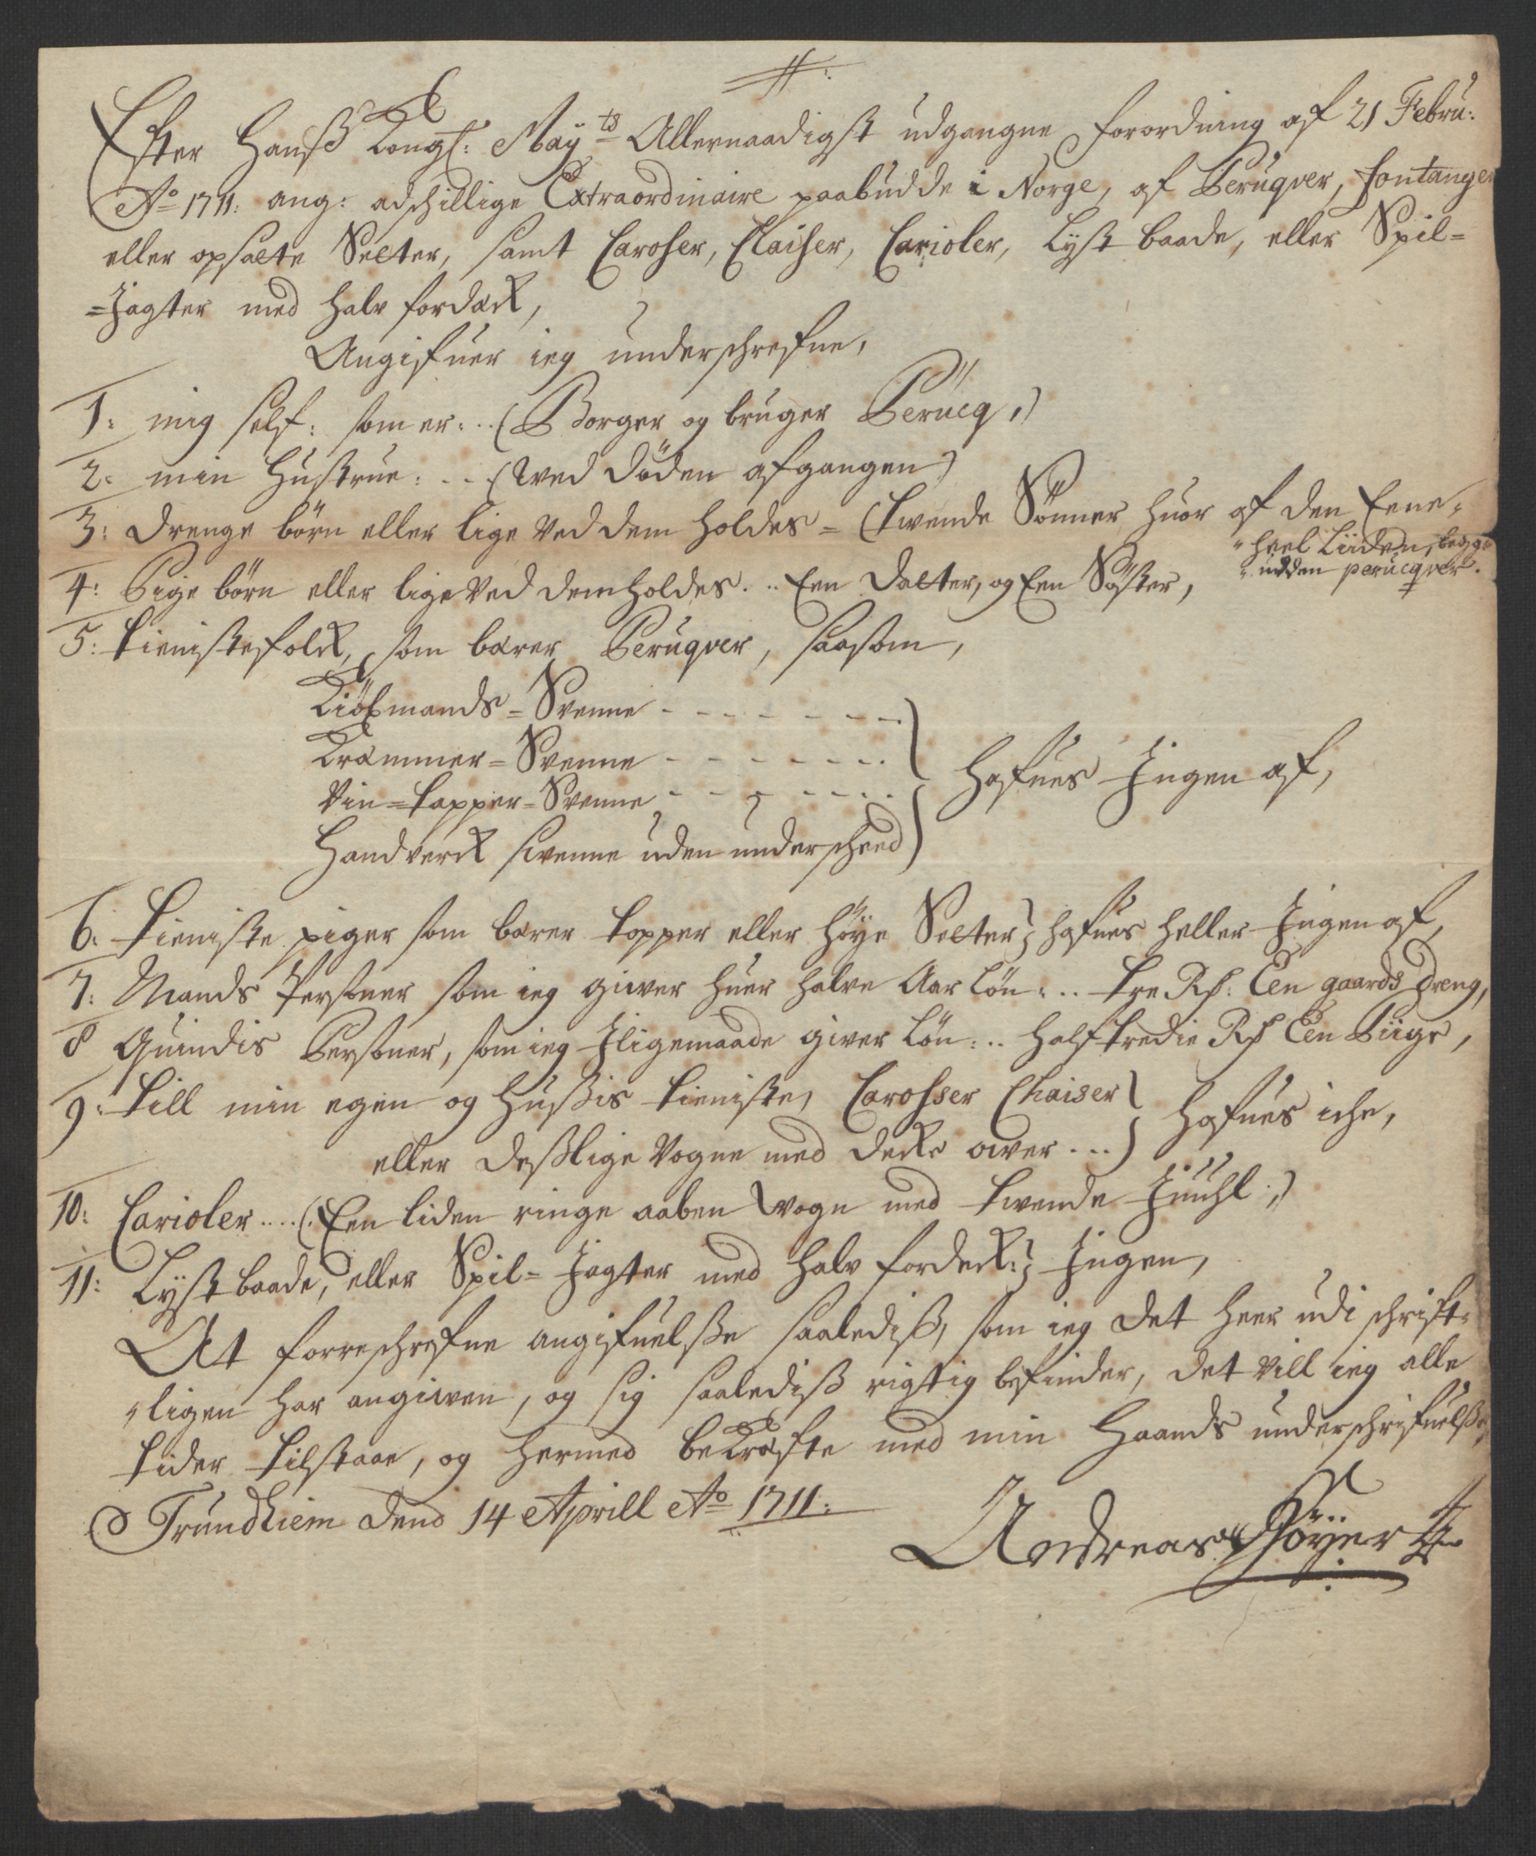 Efter Hanß Kongl: May:ts Allernaadigst udgangne forordning af 21 Febru:
Ao 1711: ang: adschillige Extraordinaire paabudde i Norge, af Peruqver, fontanger
eller opsatte Setter, samt Caroser, Chaiser, Carioler, Lyst baade, eller Spil=
=Jagter med halv fordæck,
Angifuer ieg underschrefne,
1: mig self: som er: .. (Borger og bruger Perucq,)
2: min Hustrue: .. (Ved Döden afgangen)
3: Drenge börn eller lige ved dem holdes = (Tvende Sönner huor af den Eene
heel Liiden, begge
udden perucqver.
4: Pige börn eller lige ved dem holdes. .. Een Datter, og Een Söster,
5: Tienistefolck, som bærer Peruqver, saasom,
Kiöbmands = Svenne - - - - - - -
Kræmmer = Svenne - - - - - - -
Vin = Tapper = Svenne - - - - - -
Handverck svenne uden underscheed
} hafues Ingen af,
6: Tieniste piger som bærer Topper eller höye Setter; hafues heller Ingen af,
7: Mands Persohner som ieg giver huer halve Aar Lön: .. Tre Rd: Een gaards Dreng,
8 Quindis Persohner, som ieg Iligemaade giver Lön: .. halftredie Rd Een Piige,
9: Till min egen og Hußis Tieniste, Carosser Chaiser
eller Deßlige Vogne med decke over ... } hafues iche,
10: Carioler .... (Een liden ringe aaben Vogn med Tvende Hiuhl:)
11: Lyst baade, eller Spil= Jagter med halv fordeck; Ingen,
At forreschrefne angifuelße saalediß, som ieg det heer udi schrift=
ligen har angiven, og sig saalediß rigtig befinder, det vill ieg alle
Tider Tilstaae, og hermed bekræfte med min Haands underschrifuelße,
Trundhiem Dend 14 Aprill Ao 1711:
Andreas Höyer